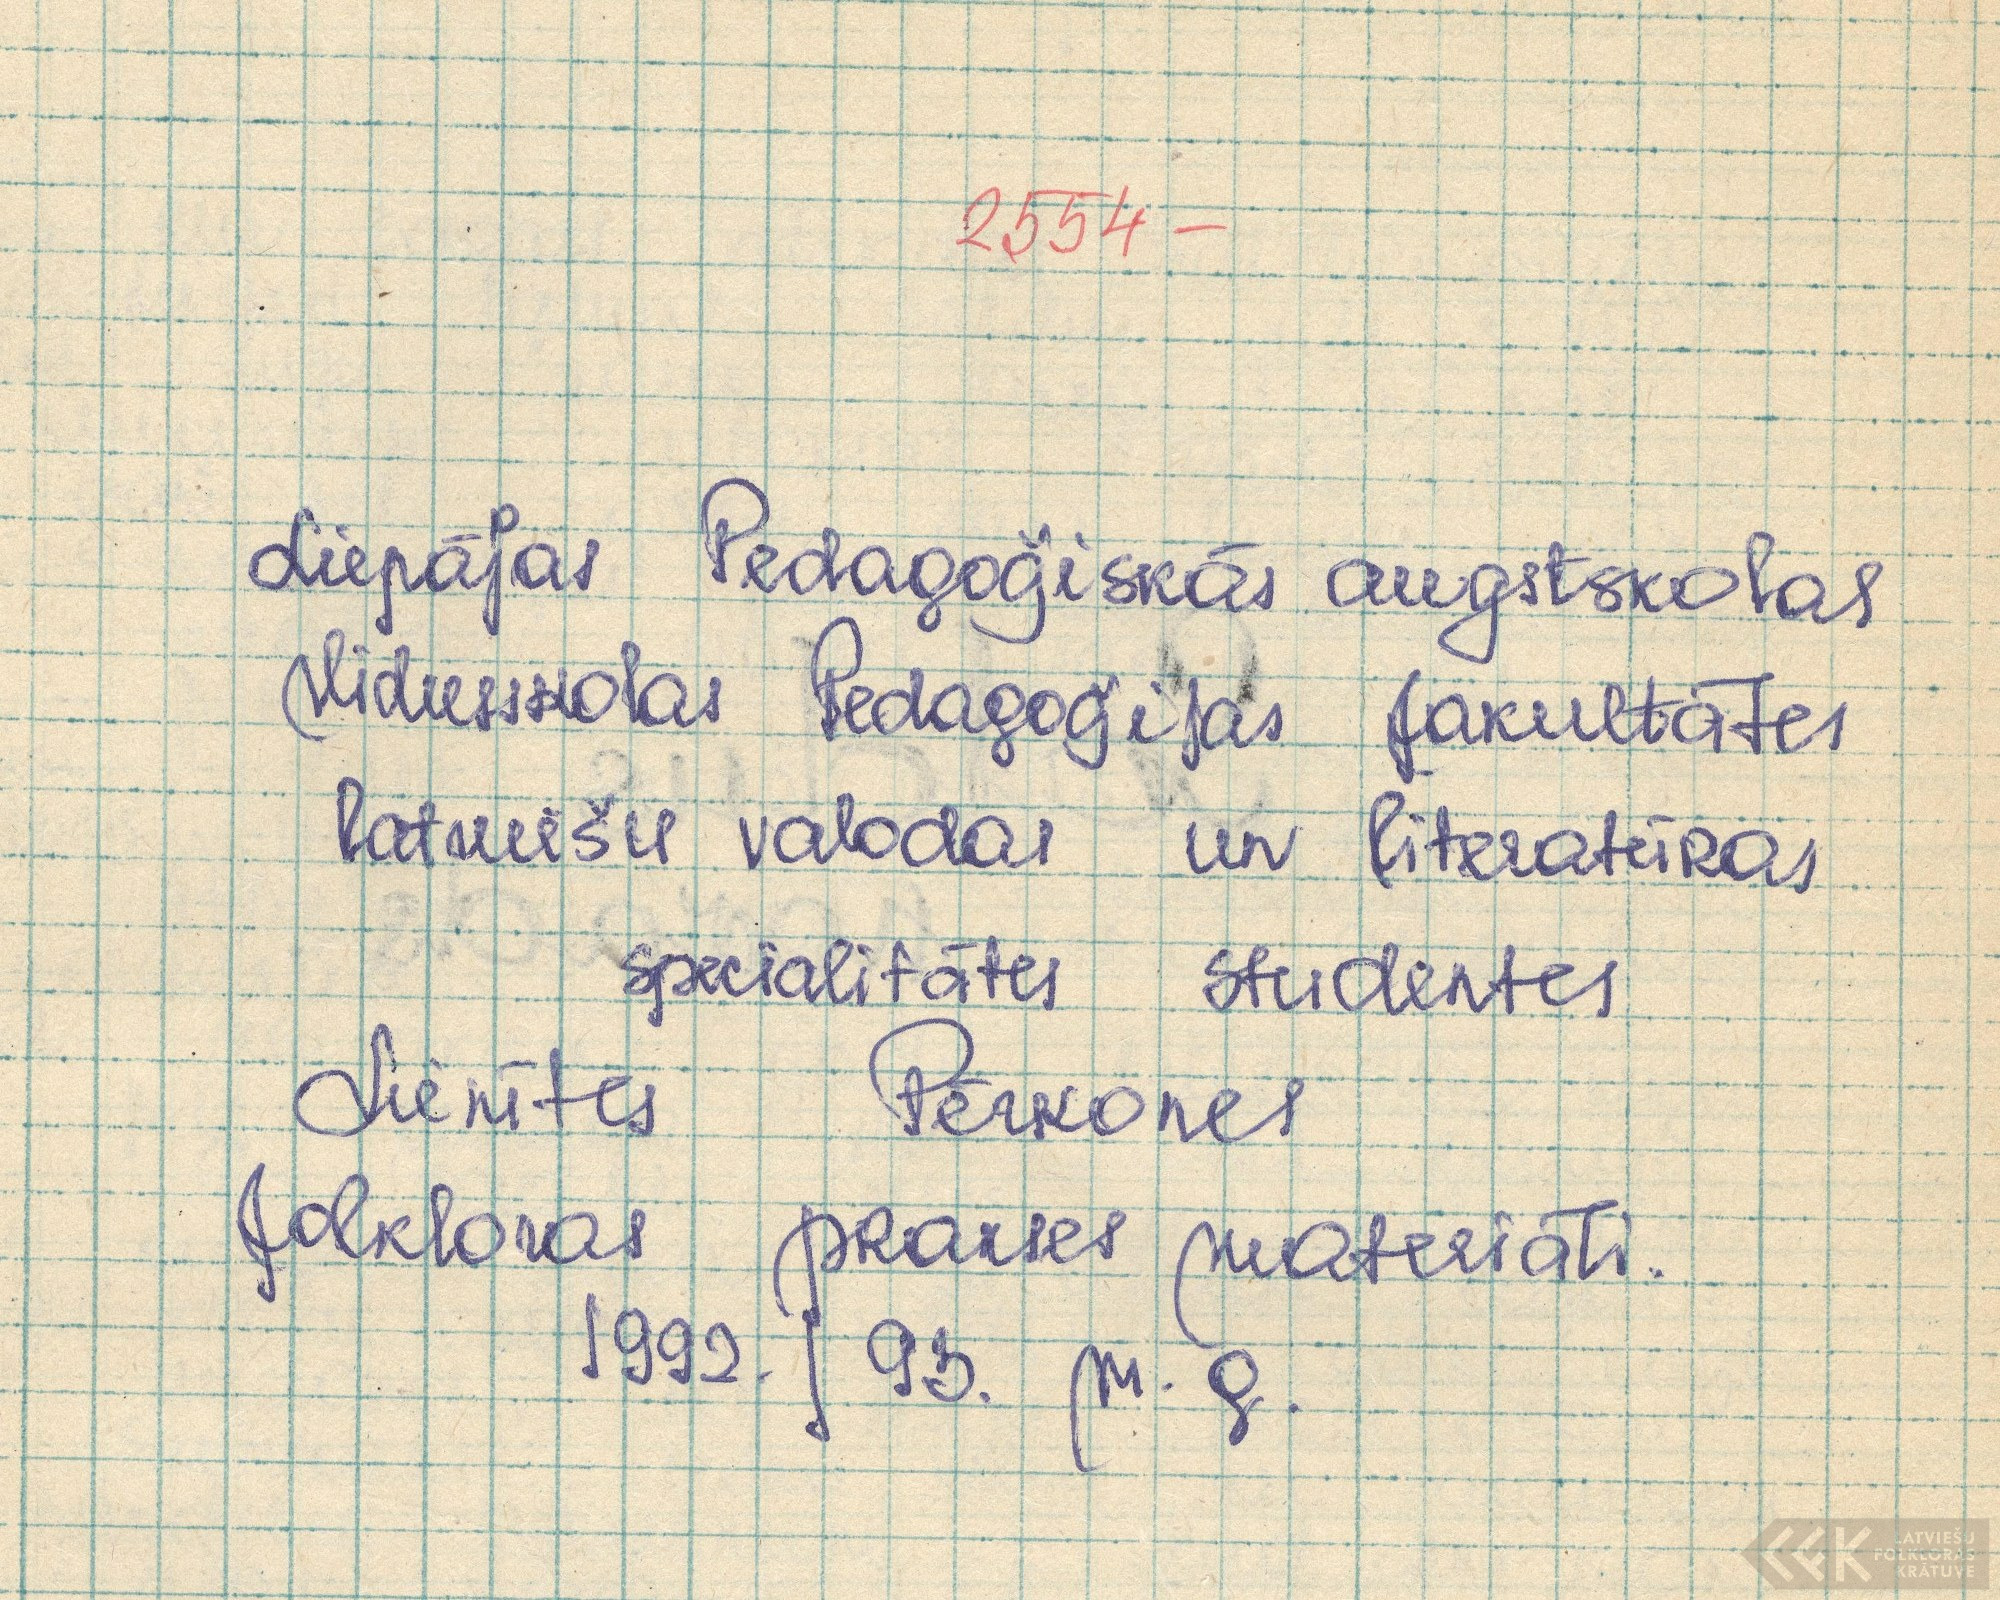 2554 –
Liepājas Pedagoģiskās augstskolas
Vidusskolas Pedagoģijas fakultātes
latviešu valodas un literatūras
specialitātes studentes
Lienītes Pērkones
folkloras prakses materiāli.
1992. / 93. m. g.
LATVIEŠU
FOLKLORAS
KRĀTUVE